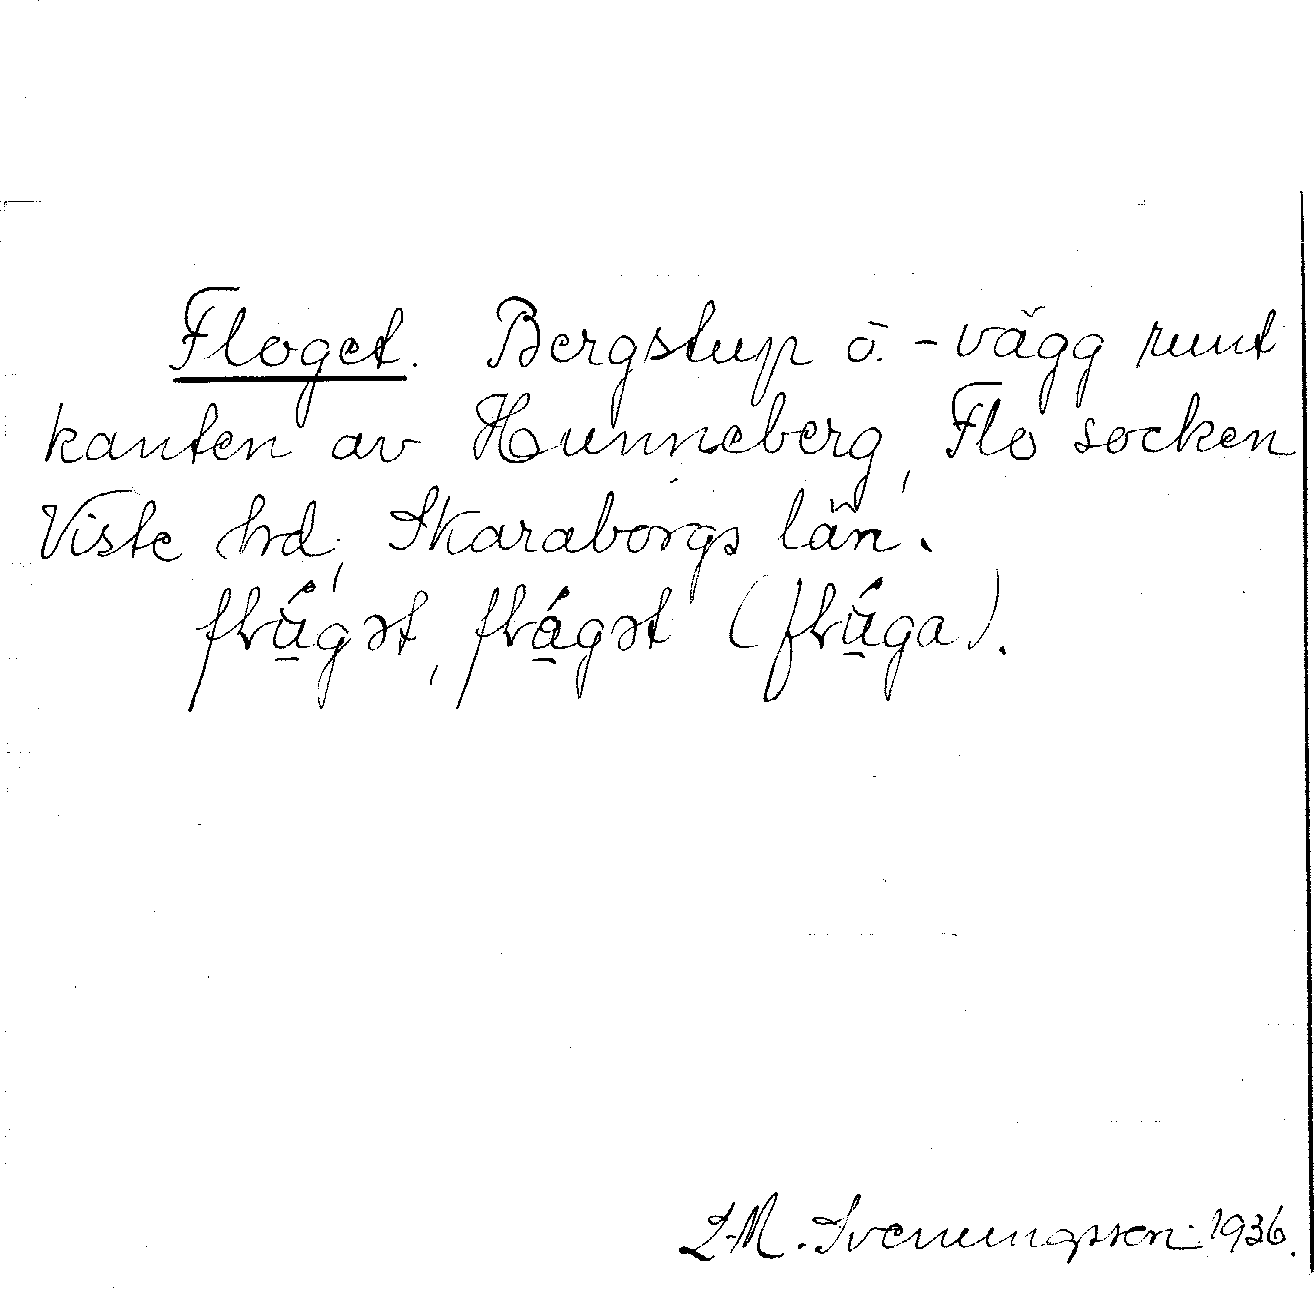 Floget. Bergstup o. -vägg runt
kanten av Hunneberg, Flo socken
Viste hrd, Skaraborgs län.
flú̲gət, flá̲gət (flú̲ga).
L-M. Svenungsson 1936.